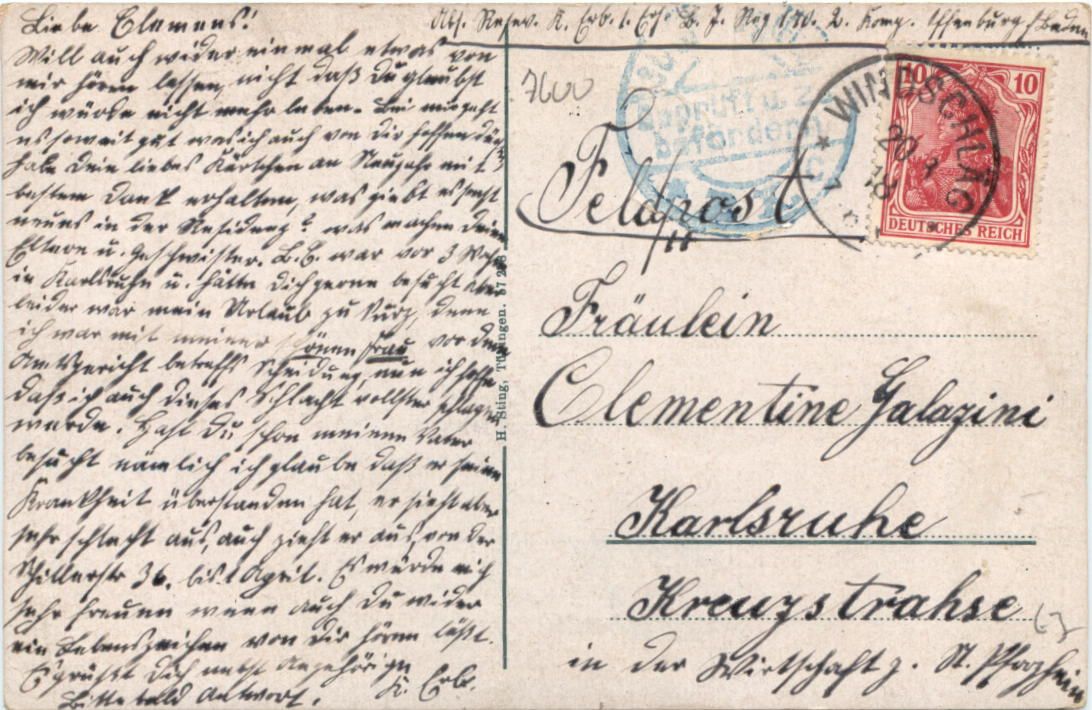 Liebe Clemens!
Will auch wider einmal etwas von
mir hören lassen, nicht daß Du glaubst
ich würde nicht mehr leben. Bei mir geht
es soweit gut was ich auch von Dir hoffen
habe Dein liebes Kärtchen an Neujahr mit
bestem Dank erhalten, was giebt es sonst
neues in der Residenz? was machen Deine
Eltern u. Geschwister. L. C. war vor 3
in Karlsruhe u. hätte Dich gerne besucht aber
leider war mein Urlaub zu kurz, denn
ich war mit meiner schönen Frau vor dem
Amtsgericht betreffs Scheidung, nun ich hoffe
daß ich auch dieses Schlacht
werde. Hast Du schon meinen Vater
besucht nämlich ich glaube daß er seine
Krankheit überstanden hat, er sieht aber
sehr schlecht aus, auch zieht er aus, von der
Schillerstr 36. bis 1 April. Es würde mich
sehr freuen wenn auch Du wider
ein Lebenszeichen von Dir hören läßt.
Es grüßt Dich nebst Angehörigen
K. Erb.
Bitte bald Antwort.
Abs. Reserv. K. Erb. 1. Ers. B. J. Reg 170. 2. Komp. Offenburg / Baden
7600
Geprüft u. z.
befördern
WINDSCHLÄG
20
18
10 10
DEUTSCHES REICH
Feldpost
Fräulein
Clementine Galazini
Karlsruhe
Kreuzstrahse
in der Wirtschaft z. St. Pforzheim
H. Sting, Tübingen.